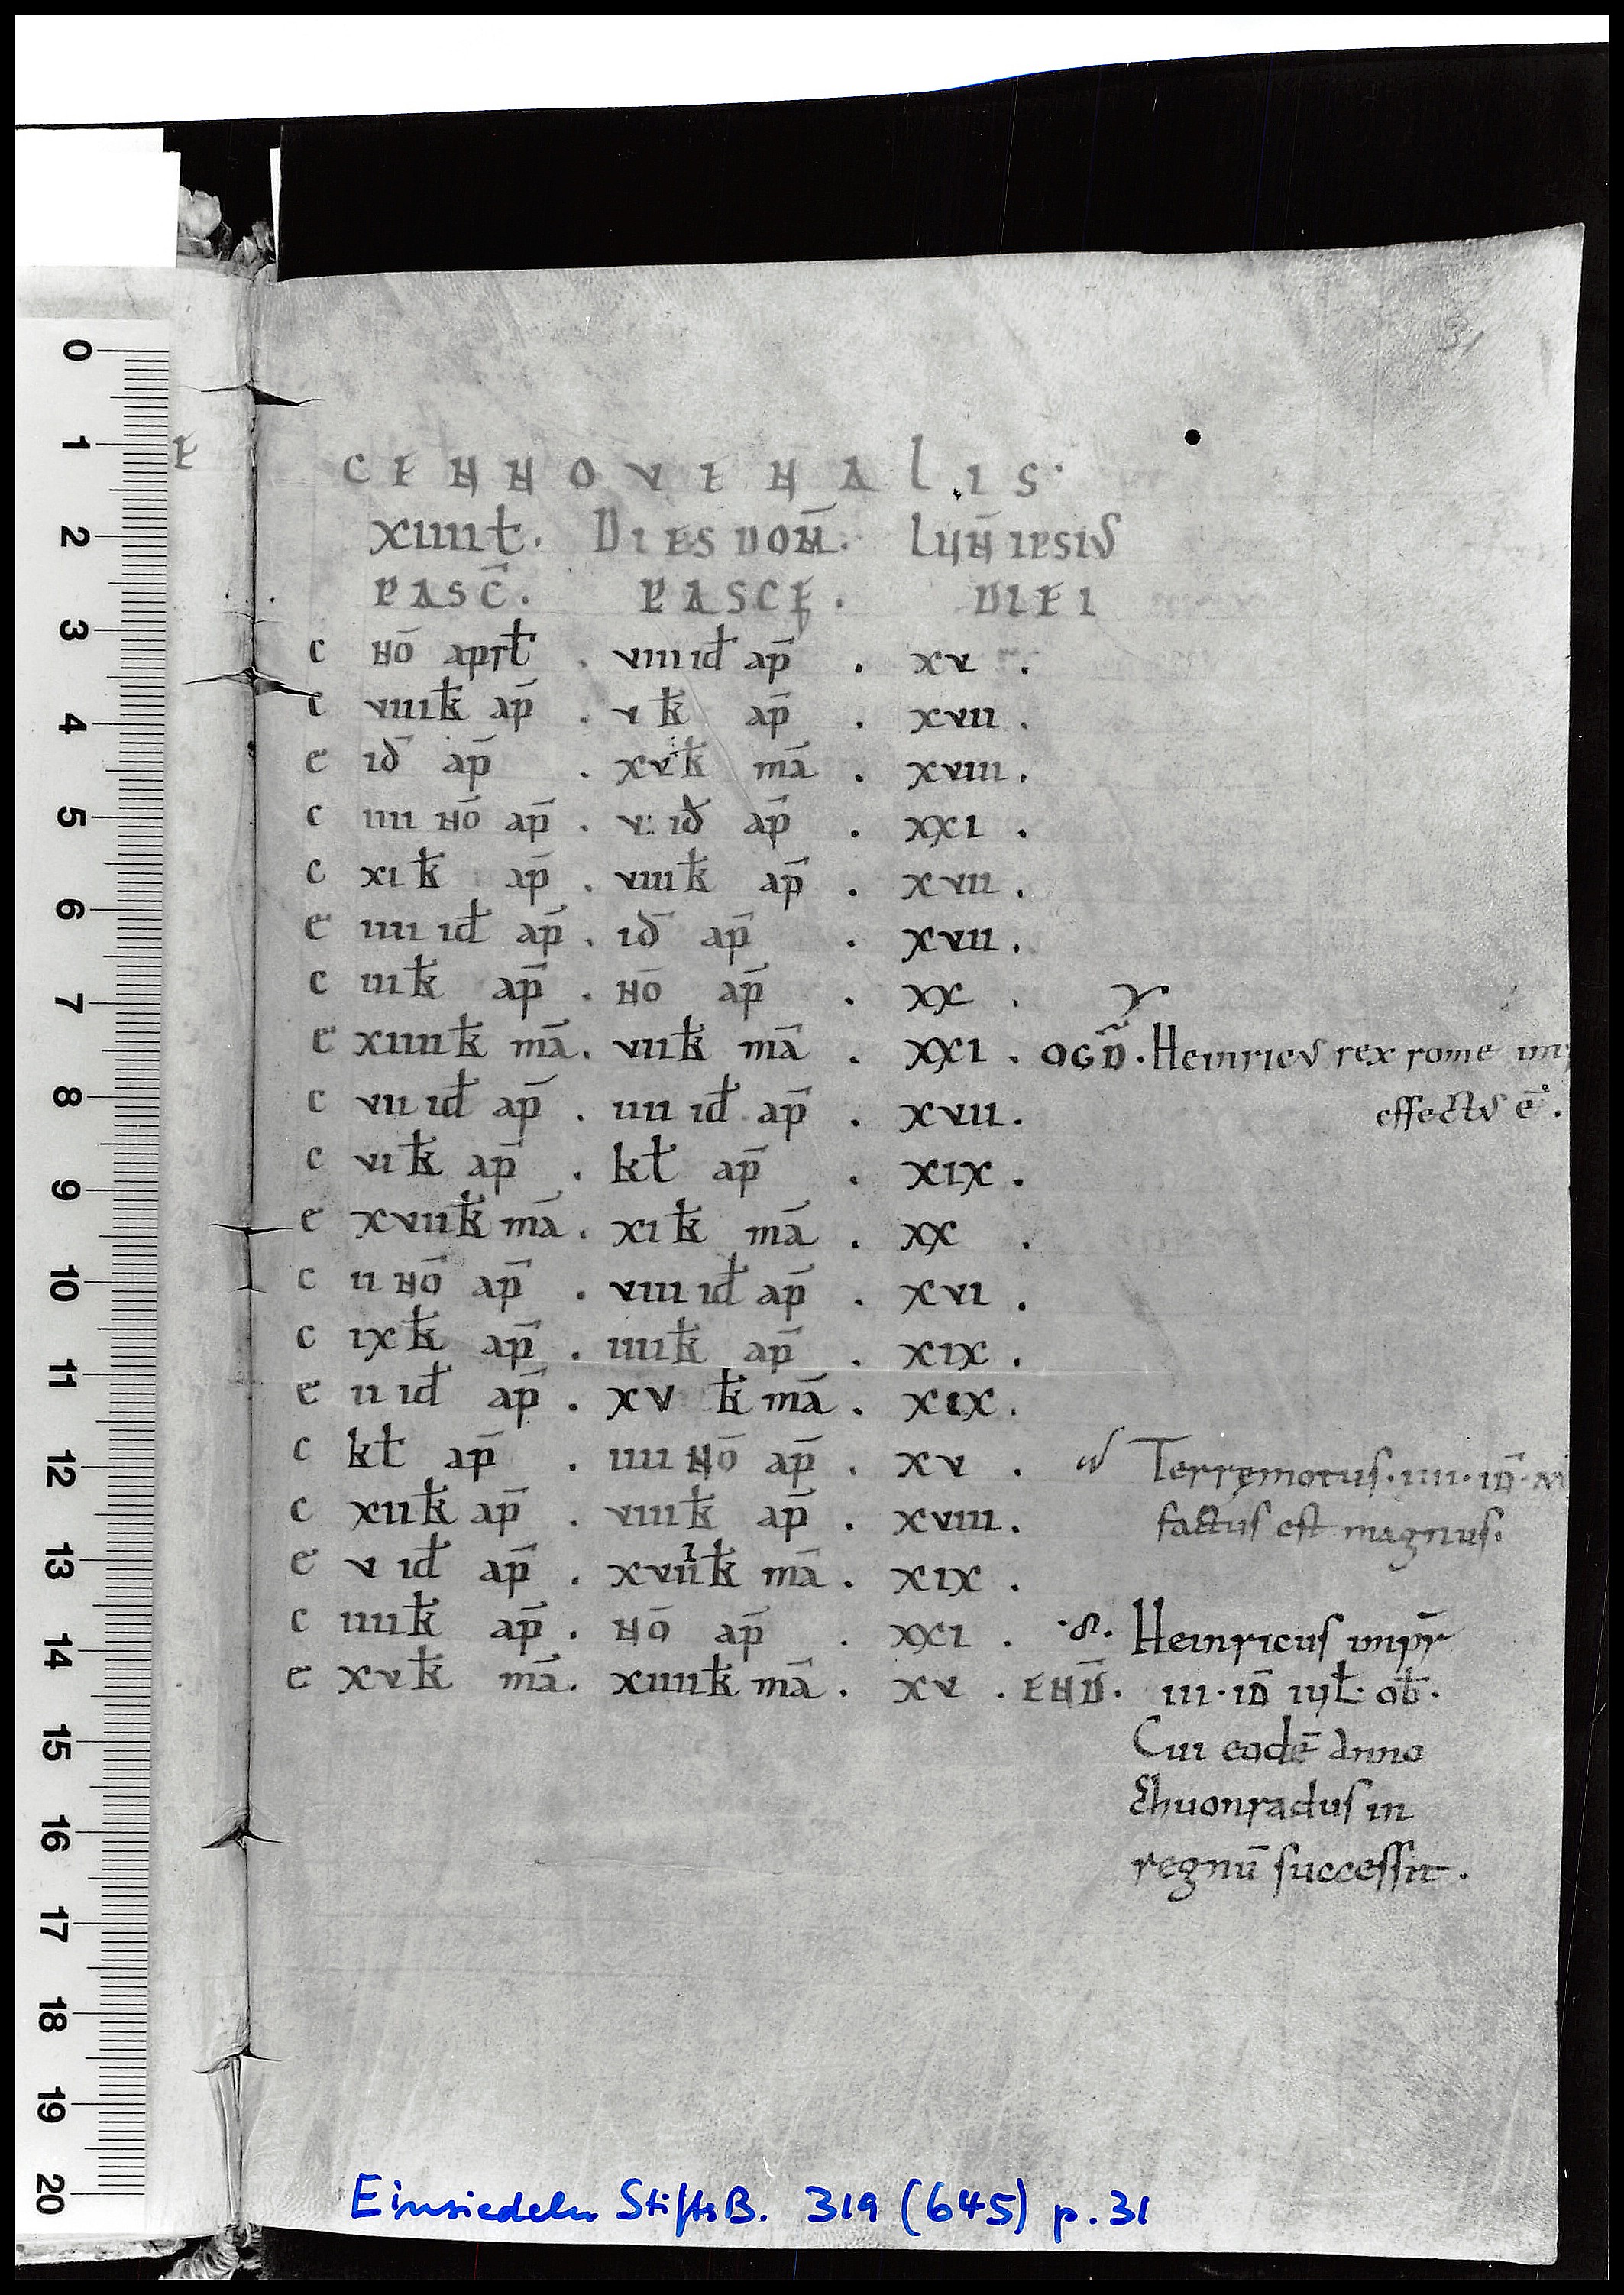 31
E
CENNOVENALIS.
XIIIIł. DIES DOM̄. LUN̄ IPSIUS
PASC̄. PASCĘ. DIEI
c NO̅ apꝛł . VIII iđ ap̄ . XV .
c VIIIk̄ ap̄ . V k̄ ap̄ . XVII .
e iđ ap̄ . XVk̄ mā . XVIII .
c IIII NO̅ ap̄ . V iđ ap̄ . XXI .
c XI k̄ ap̄ . VIIIk̄ ap̄ . XVII .
e IIII iđ ap̄ . iđ ap̄ . XVII .
c IIIk̄ ap̄ . NO̅ ap̄ . XX . γ
e XIIIIk̄ mā . VIIk̄ mā . XXI . OGD̄ . Heinricus rex rome im
effectus ē .
c VII iđ ap̄ . IIII iđ ap̄ . XVII .
c VI k̄ ap̄ . kł ap̄ . XIX .
e XVIIk̄ mā . XI k̄ mā . XX .
c II NO̅ ap̄ . VIII iđ ap̄ . XVI .
c IXk̄ ap̄ . IIIIk̄ ap̄ . XIX .
e II iđ ap̄ . XV k̄ mā . XIX .
c kł ap̄ . IIII NO̅ ap̄ . XV . Terręmotus . IIII . ID̄ . M
c XIIk̄ ap̄ . VIIIk̄ ap̄ . XVIII . factus est magnus .
e V iđ ap̄ . XVIIk̄ mā . XIX .
c IIIIk̄ ap̄ . NO̅ ap̄ . XXI . Heinricus impr̄
e XVk̄ mā . XIIIIk̄ mā . XV . END̄ . III . ID̄ IUł . ob̄ .
Cui eodē anno
Chuonradus in
regnū successit .
Einsiedeln StiftsB. 319 (645) p. 31
0
1
2
3
4
5
6
7
8
9
10
11
12
13
14
15
16
17
18
19
20